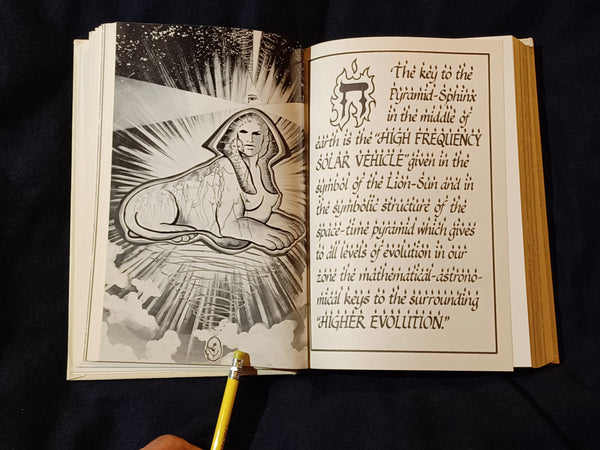 ה
The key to the
Pyramid-Sphinx
in the middle of
earth is the "HIGH FREQUENCY
SOLAR VEHICLE" given in the
symbol of the Lion-Sun and in
the symbolic structure of the
space-time pyramid which gives
to all levels of evolution in our
zone the mathematical-astrono-
mical keys to the surrounding
"HIGHER EVOLUTION."